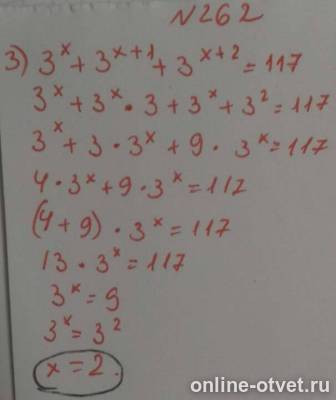 N262
3) 3^x + 3^{x+1} + 3^{x+2} = 117
3^x + 3^x · 3 + 3^x + 3^2 = 117
3^x + 3 · 3^x + 9 · 3^x = 117
4 · 3^x + 9 · 3^x = 117
(4 + 9) · 3^x = 117
13 · 3^x = 117
3^x = 9
3^x = 3^2
x = 2.
online-otvet.ru